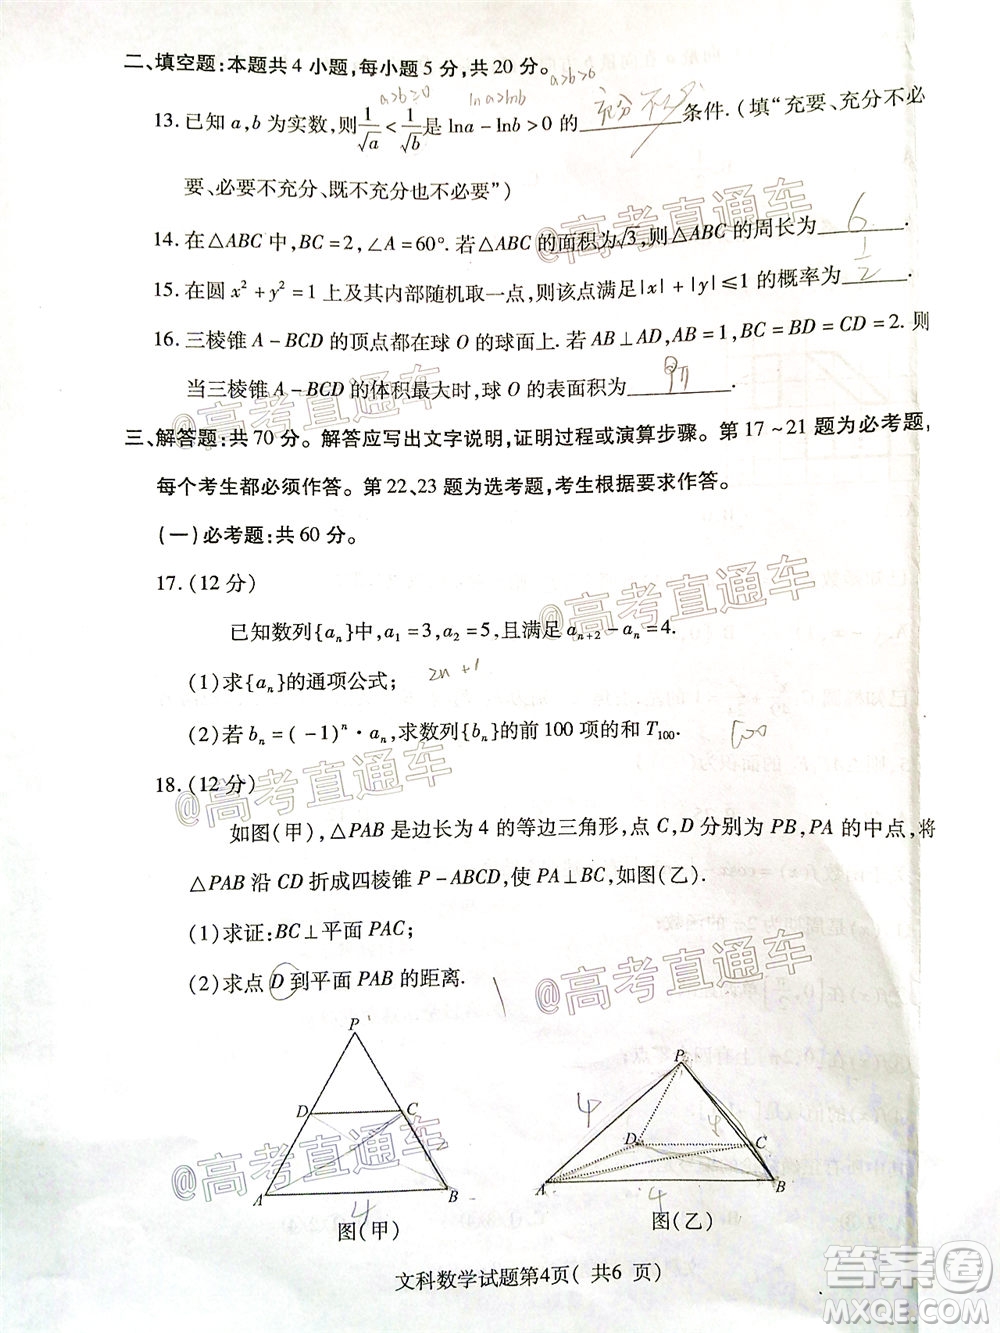 二、填空题:本题共 4 小题,每小题 5 分,共 20 分。
a>b≥0 lna>lnb a>b>0
13.已知 a,b 为实数,则 1/√a < 1/√b 是 lna-lnb>0 的 充分不必 条件.(填“充要、充分不必
要、必要不充分、既不充分也不必要”)
14.在△ABC 中,BC=2,∠A=60°.若△ABC 的面积为√3,则△ABC 的周长为 6 .
15.在圆 x²+y²=1 上及其内部随机取一点,则该点满足|x|+|y|≤1 的概率为 1/2 .
16.三棱锥 A-BCD 的顶点都在球 O 的球面上.若 AB⊥AD,AB=1,BC=BD=CD=2.则
当三棱锥 A-BCD 的体积最大时,球 O 的表面积为 .
三、解答题:共 70 分。解答应写出文字说明,证明过程或演算步骤。第 17~21 题为必考题,
每个考生都必须作答。第 22、23 题为选考题,考生根据要求作答。
(一)必考题:共 60 分。
17.(12 分)
已知数列{aₙ}中,a₁=3,a₂=5,且满足 aₙ₊₂-aₙ=4.
(1)求{aₙ}的通项公式; 2n+1
(2)若 bₙ=(-1)ⁿ·aₙ,求数列{bₙ}的前 100 项的和 T₁₀₀.
18.(12 分)
如图(甲),△PAB 是边长为 4 的等边三角形,点 C,D 分别为 PB,PA 的中点,将
△PAB 沿 CD 折成四棱锥 P-ABCD,使 PA⊥BC,如图(乙).
(1)求证:BC⊥平面 PAC;
(2)求点 D 到平面 PAB 的距离.
P
D C
A B
4
图(甲)
P
4 4
D C
A B
4
图(乙)
文科数学试题第4页( 共6 页)
@高考直通车
@高考直通车
@高考直通车
@高考直通车
@高考直通车
@高考直通车
@高考直通车
答案圈
MXQE.COM